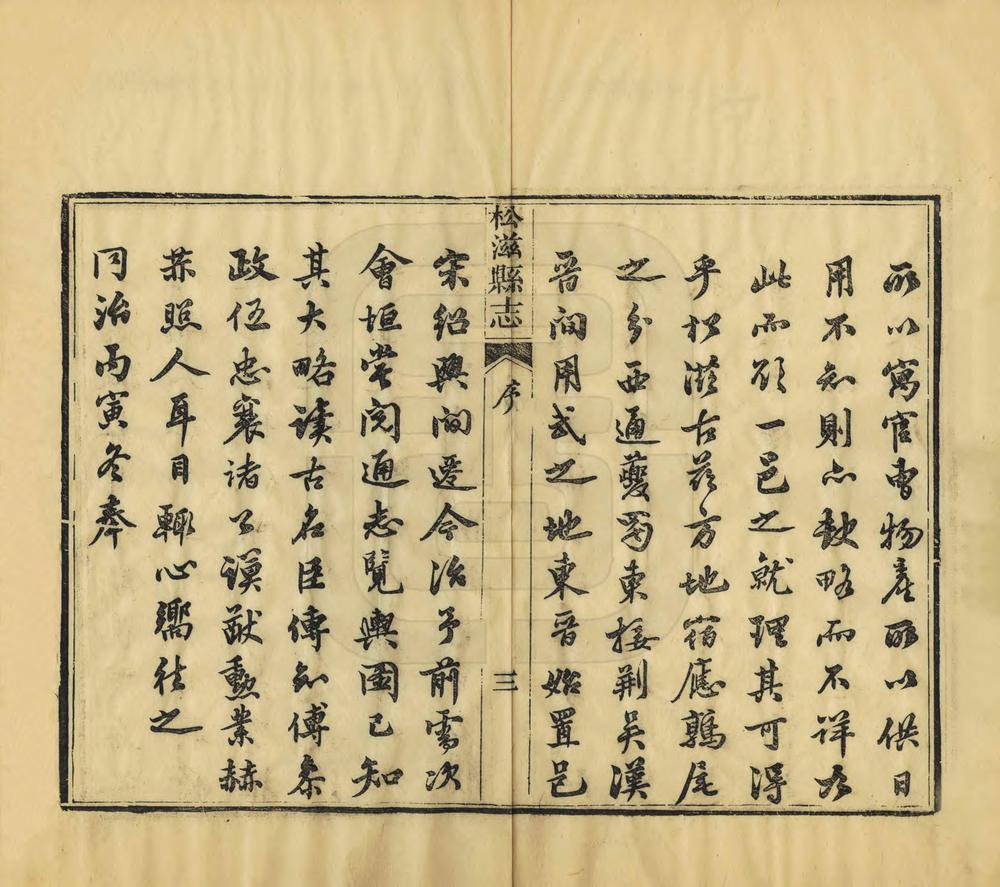 所以寓官曹物産所以供日
用不知則亦缺略而不詳如
此而欲一邑之就理其可得
乎松滋古茲方地宿應鶉尾
之分西通夔蜀東接荊吳漢
晉間用武之地東晉始置邑
松滋縣志
序
三
宋紹興間遷今治予前需次
會垣嘗閱通志覽輿圖已知
其大略讀古名臣傳知傅泰
政伍忠襄諸公謨猷勳業赫
赫照人耳目輒心嚮往之
同治丙寅冬奉